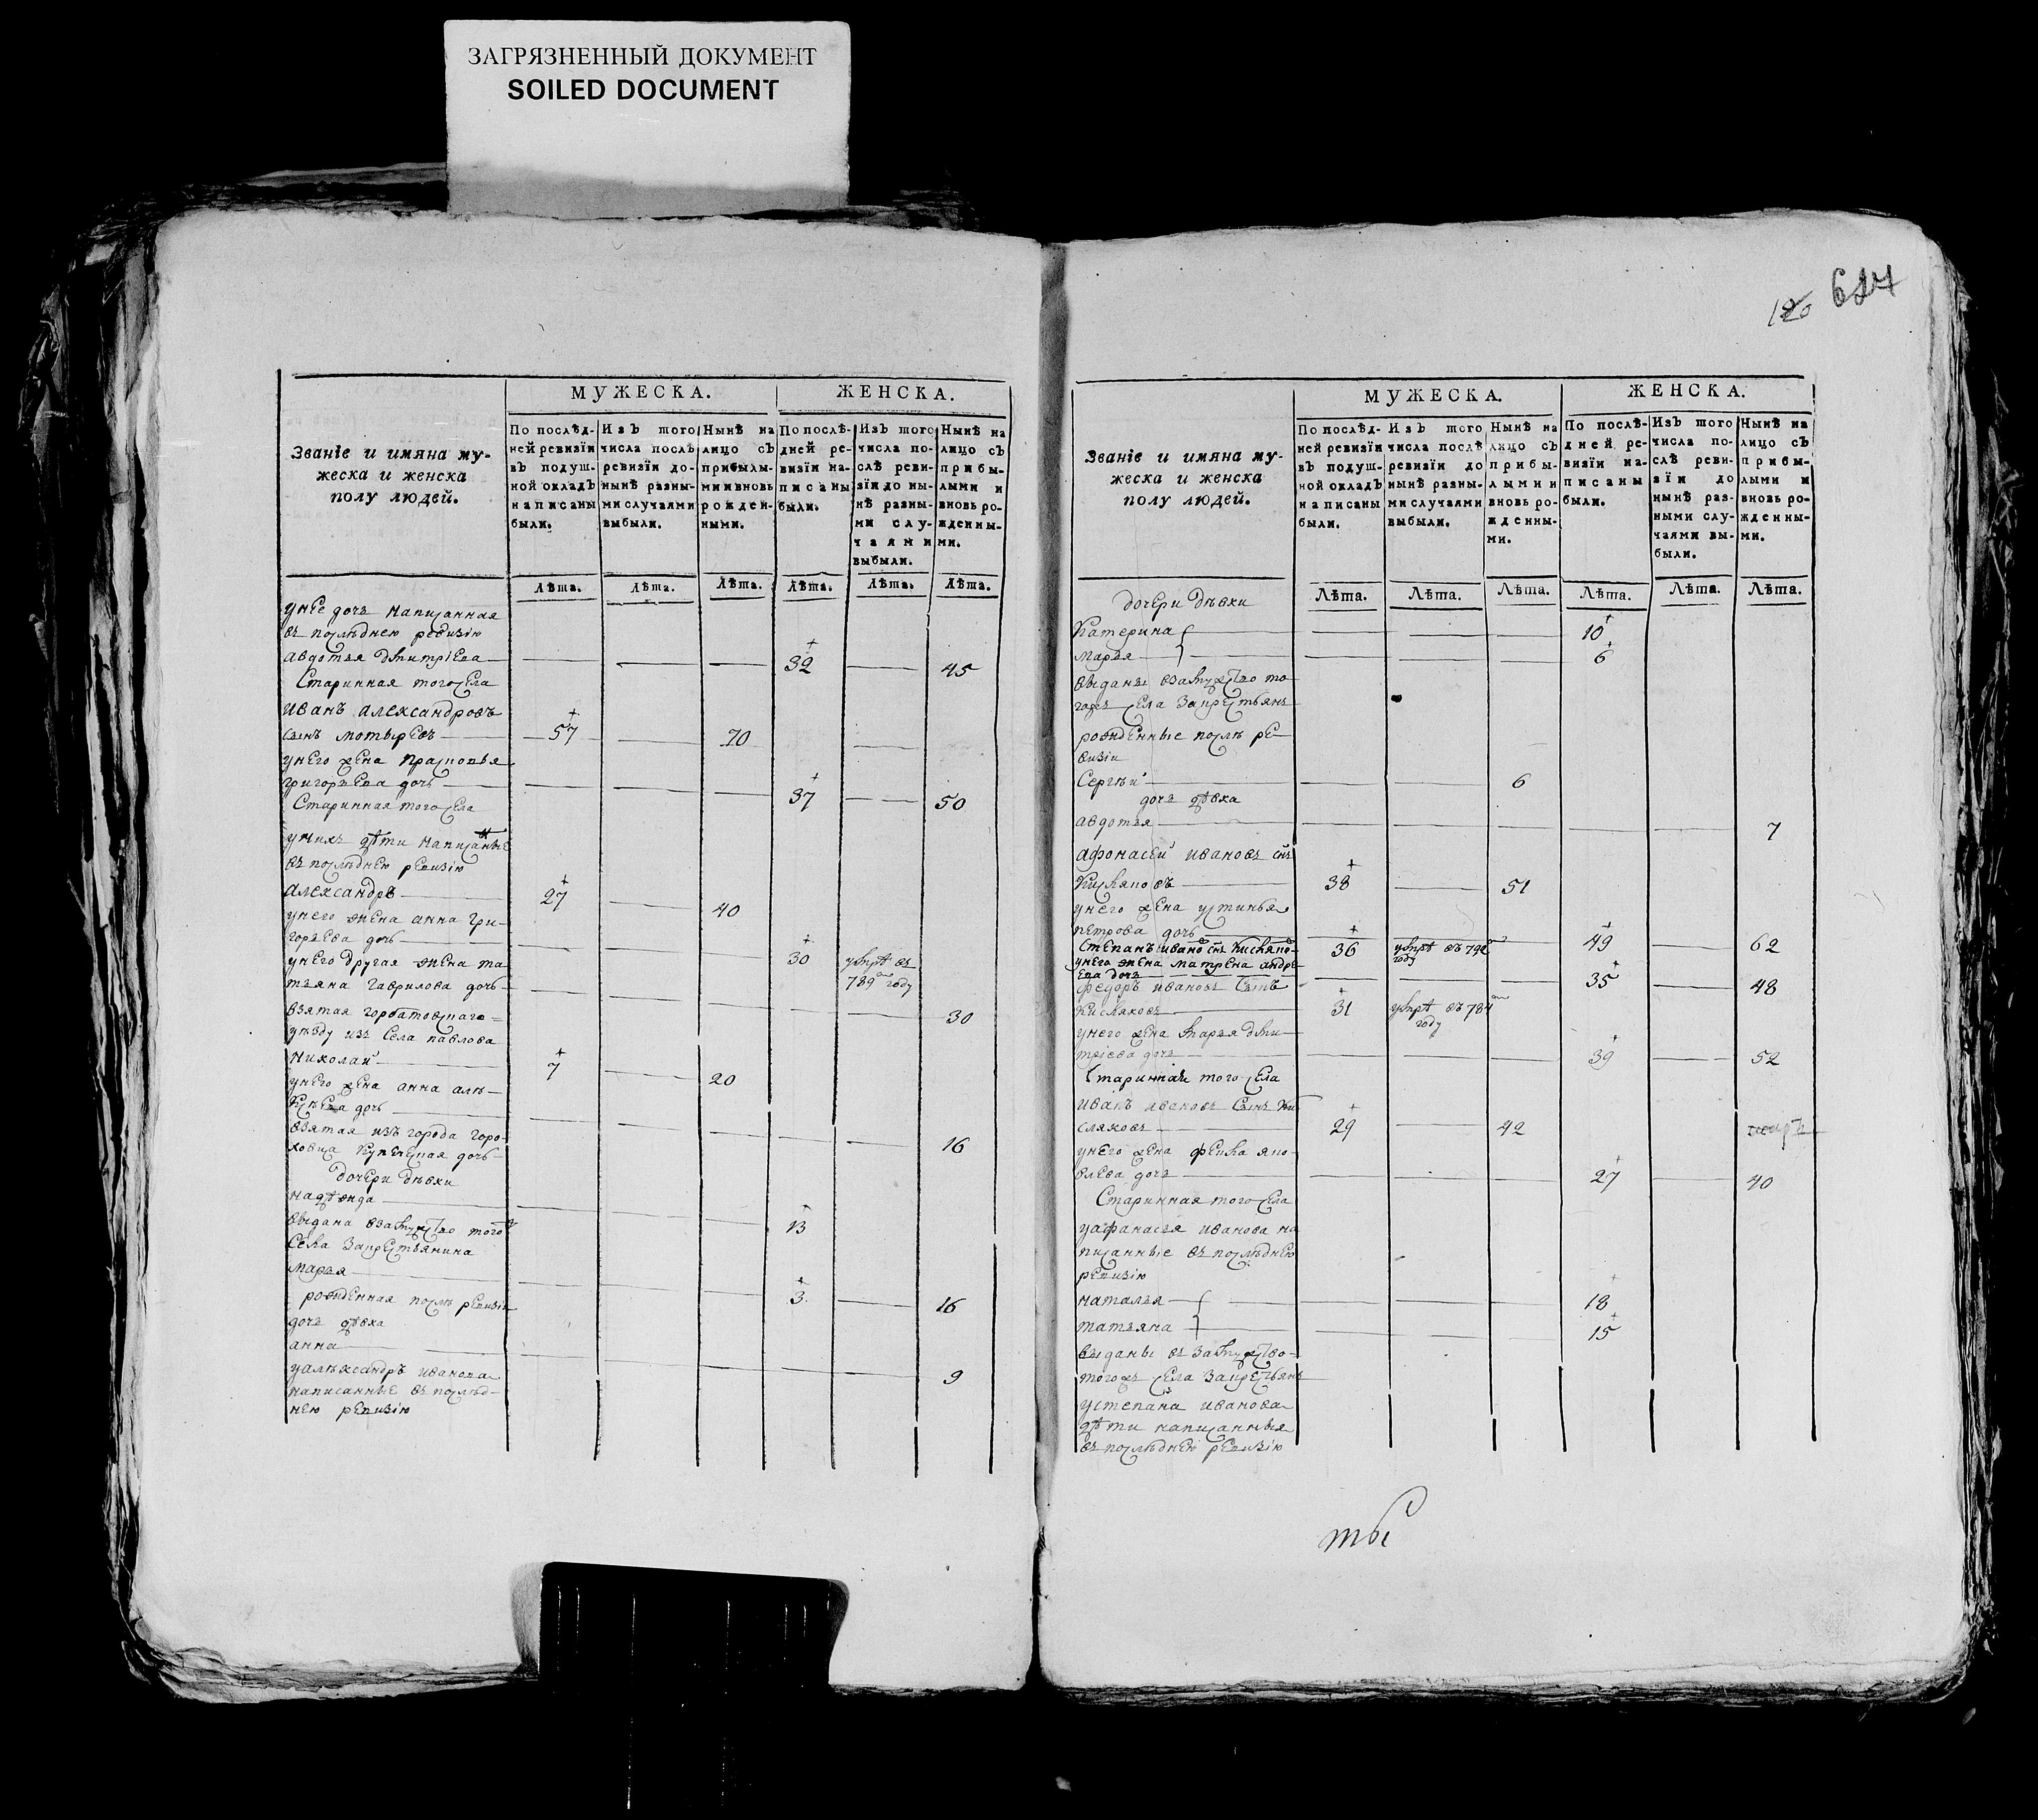 ЗАГРЯЗНЕННЫЙ ДОКУМЕНТ
SOILED DOCUMENT
Званіе и имяна му-
жеска и женска
полу людей.
МУЖЕСКА.
По послѣд-
ней ревизіи
въ подуш-
ной окладъ
написаны
были.
Изъ того
числа послѣ
ревизіи до-
нынѣ разны-
ми случаями
выбыли.
Нынѣ на
лицо съ
прибылы-
ми и вновь
рожден-
ными.
ЖЕНСКА.
По послѣ-
дней ре-
визіи на-
писаны
были.
Изъ того
числа по-
слѣ реви-
зіи до ны-
нѣ разны-
ми слу-
чаями
выбыли.
Нынѣ на
лицо съ
прибы-
лыми и
вновь ро-
жденны-
ми.
Лѣта. Лѣта. Лѣта. Лѣта. Лѣта. Лѣта.
унее дочь написанная
въ послѣднею ревизію
авдотья дмитріева 32 45
Старинная того села
иванъ александровъ
сынъ мотыревъ 57 70
унего жена прасковья
григорьева дочь 37 50
Старинная того села
унихъ дѣти написаные
въ послѣднею ревизію
александръ 27 40
унего жена анна гри-
горьева дочь 30 умре въ
789 году
унего другая жена та-
тьяна гаврилова дочь
взятая горбатовскаго 30
уѣзду изъ села павлова
николай 7 20
унего жена анна алѣ-
ксѣева дочь
взятая изъ города горо- 16
ховца купецкая дочь
дочери дѣвки
надѣжда 13
выдана взамужство того
села закрестьянина
марья 3 16
рожденная послѣ ревизіи
дочь дѣвка
анна 9
уалѣксандръ иванова
написанные въ послѣд-
нею ревизію
617
Званіе и имяна му-
жеска и женска
полу людей.
МУЖЕСКА.
По послѣд-
ней ревизіи
въ подуш-
ной окладъ
написаны
были.
Изъ того
числа послѣ
ревизіи до
нынѣ разны-
ми случаями
выбыли.
Нынѣ на
лицо съ
прибы-
лыми и
вновь ро-
жденны-
ми.
ЖЕНСКА.
По послѣ-
дней ре-
визіи на-
писаны
были.
Изъ того
числа по-
слѣ реви-
зіи до
нынѣ раз-
ными слу-
чаями вы-
были.
Нынѣ на
лицо съ
прибы-
лыми и
вновь ро-
жденны-
ми.
Лѣта. Лѣта. Лѣта. Лѣта. Лѣта. Лѣта.
дочери дѣвки
Катерина 10
марья 6
выданы взамужство то
гожъ села закрестьянъ
рожденные послѣ ре-
визіи
Сергѣй 6
дочь дѣвка
авдотья 7
афонасей ивановъ снъ
Кисляковъ 38 51
унего жена устинья
петрова дочь 49 62
Степанъ ивано снъ Кисляко 36 умре въ 792
году
унего жена матрена андре
ева дочь 35 48
федоръ ивановъ сынъ
Кисляковъ 31 умре въ 784
году
унего жена марья дми-
тріева дочь 39 52
Старинная того села
иванъ ивановъ сынъ Ки
сляковъ 29 42
унего жена фекла яко-
влева дочь 27 40
Старинная того села
уафанасья иванова на
писанные въ послѣднею
ревизію
наталья 18
татьяна 15
выданы въ замужство
тогожъ села закрестьянъ
устепана иванова
дѣти написанныя
въ послѣднею ревизію